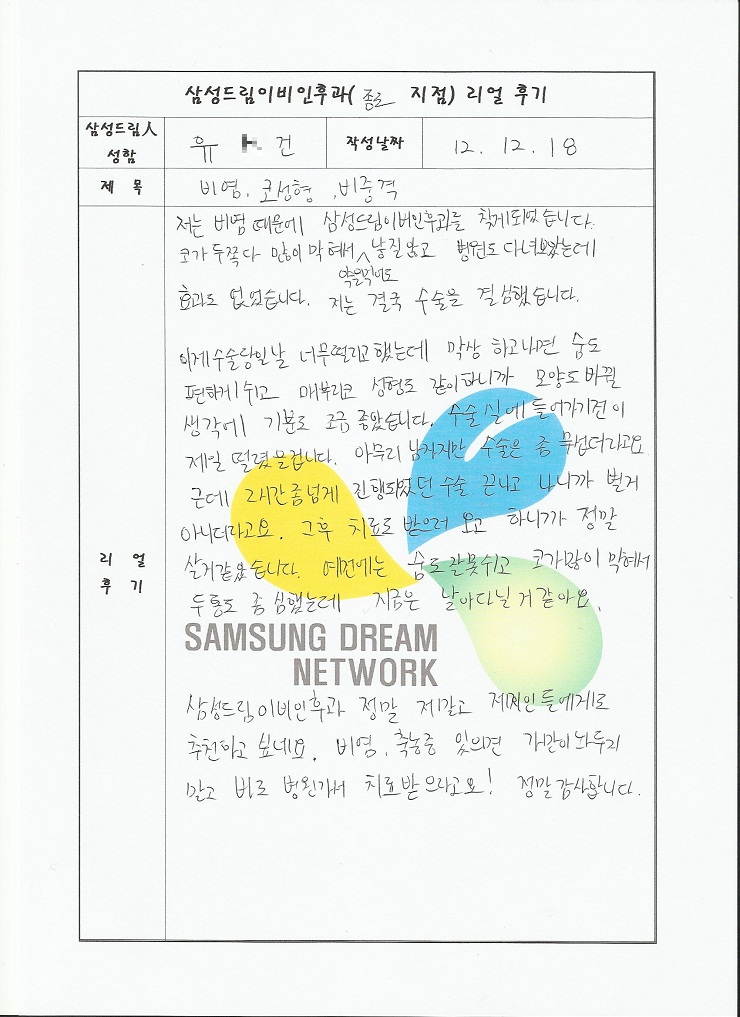 삼성드림이비인후과( 종로 지점) 리얼 후기
삼성드림人 성함
유 건
작성날짜
12. 12. 18
제 목
비염. 코성형 , 비중격
리 얼 후 기
저는 비염 때문에 삼성드림이비인후과를 찾게되었습니다.
코가 두쪽다 많이 막혀서 약을먹어도 낳질않고 병원도 다녀보았는데
효과도 없었습니다. 저는 결국 수술을 결심했습니다.
이제 수술당일날 너무떨리고 했는데 막상 하고나면 숨도
편하게 쉬고 매부리코 성형도 같이하니까 모양도 바뀔
생각에 기분도 조금 좋았습니다. 수술실에 들어가기전이
제일 떨렸을겁니다. 아무리 남자지만 수술은 좀 무섭더라고요
근데 2시간좀넘게 진행되었던 수술 끝나고 나니까 별거
아니더라고요. 그후 치료도 받으러 오고 하니까 정말
살거같았습니다. 예전에는 숨도잘못쉬고 코가많이 막혀서
두통도 좀 심했는데 지금은 날아다닐 거 같아요.
SAMSUNG DREAM
NETWORK
삼성드림이비인후과 정말 제갈고 제지인들에게로
추천하고 싶네요. 비염, 축농증 있의면 가만이 놔두지
말고 바로 병원가서 치료받으라고요! 정말감사합니다.